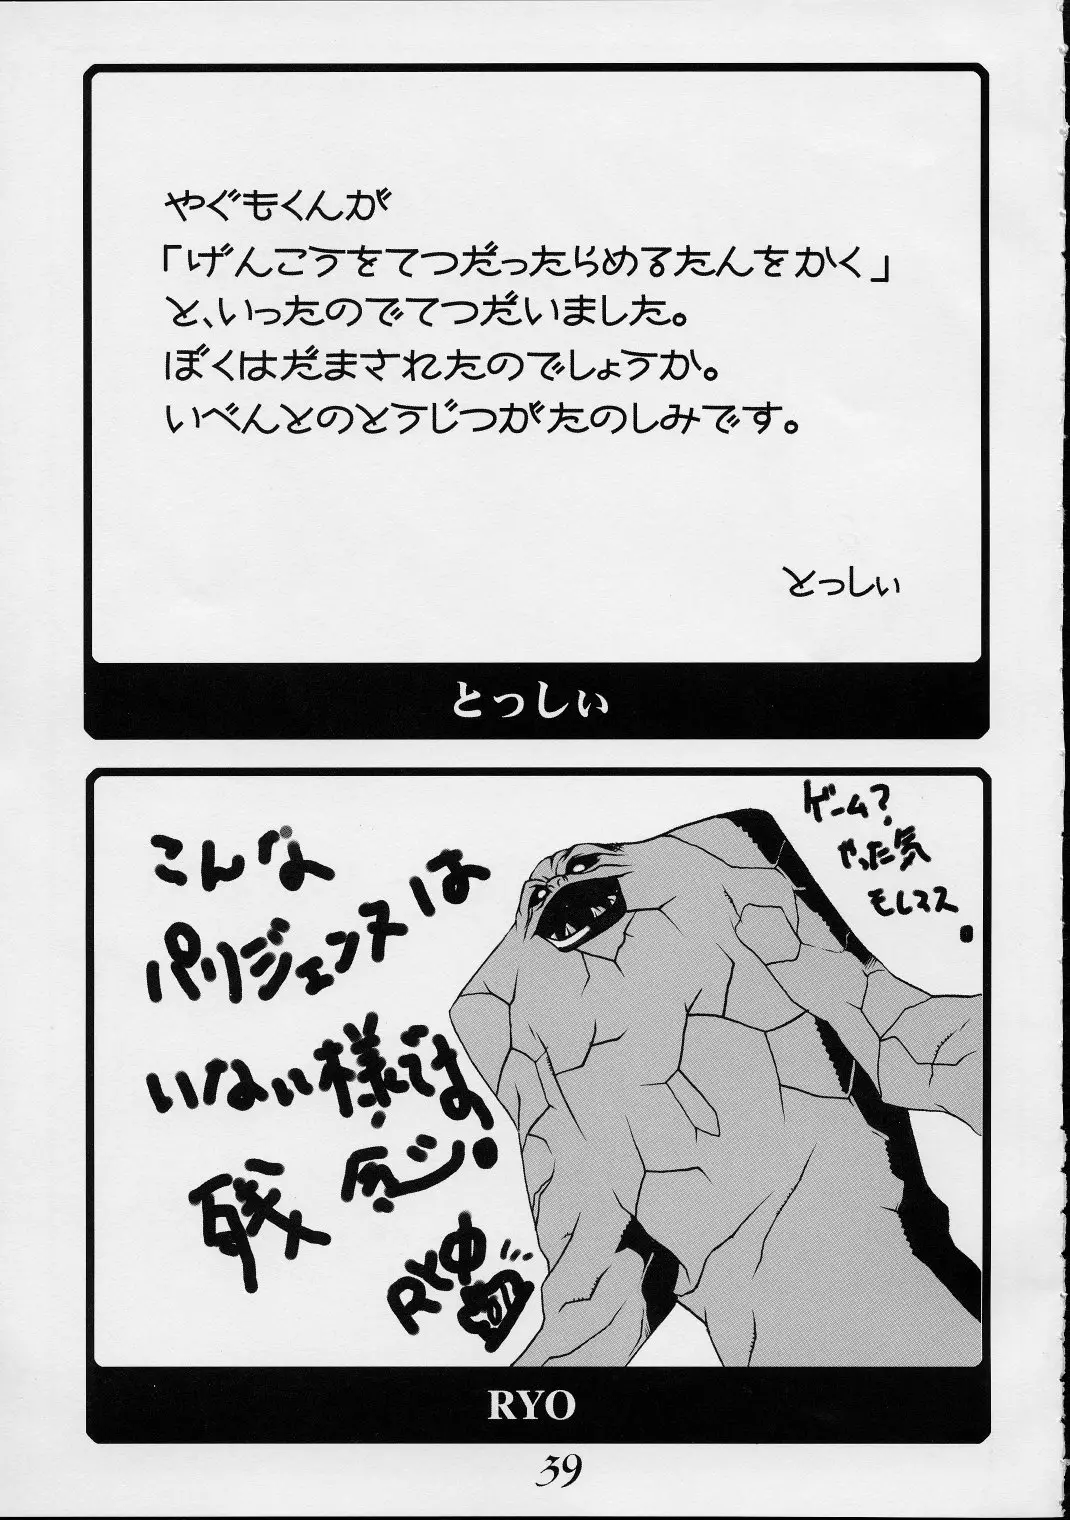 やぐもくんが
「げんこうをてつだったらめるたんをかく」
と、いったのでてつだいました。
ぼくはだまされたのでしょうか。
いべんとのとうじつがたのしみです。
とっしぃ
とっしぃ
ゲーム?
やった気
モレスス
こんな
パリジェンヌは
いない様でな
残念ジ
RYO
39